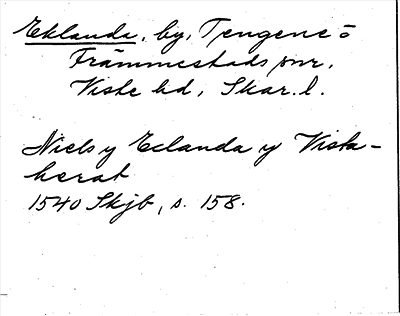 Eklanda, by, Tengene ö
Främmestads snr,
Viste hd, Skar. l.
Niels y Eclanda y Vista-
herat
1540 Skjb, s. 158.